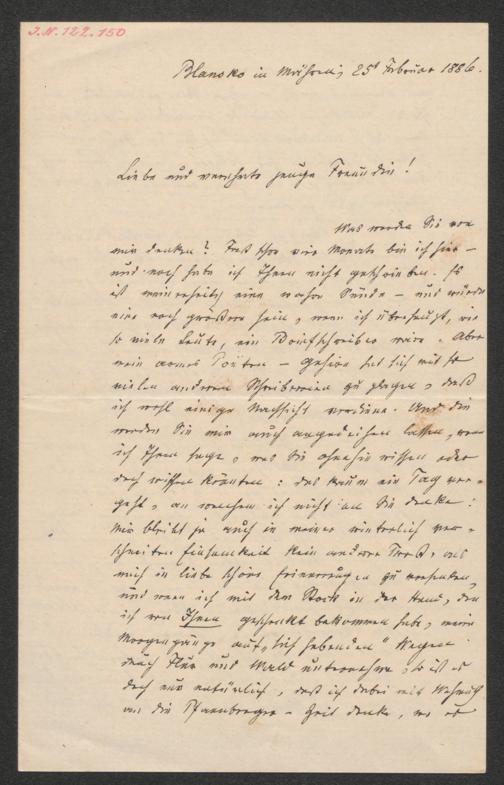 J.N. 122.150
Blansko in Mähren, 25t Februar 1886.
Liebe und verehrte junge Freundin!
Was werden Sie von
mir denken? Fast schon vier Monate bin ich hier –
und noch habe ich Ihnen nicht geschrieben. Es
ist meinerseits eine wahre Sünde – und würde
eine noch größere sein, wenn ich überhaupt, wie
so viele Leute, ein Briefschreiber wäre. Aber
mein armes Poëten-Gehirn hat sich mit so
vielen anderen Schreibereien zu plagen, daß
ich wohl einige Nachsicht verdiene. Und die
werden Sie mir auch angedeihen lassen, wenn
ich Ihnen sage, was Sie ohnehin wissen oder
doch wissen könnten: daß kaum ein Tag ver-
geht, an welchem ich nicht an Sie denke!
Mir bleibt ja auch in meiner winterlich ver-
schneiten Einsamkeit kein anderer Trost, als
mich in liebe schöne Erinnerungen zu versenken,
und wenn ich mit dem Stock in der Hand, den
ich von Ihnen geschenkt bekommen habe, meine
Morgengänge auf „sich hebenden" Wegen
durch Flur und Wald unternehme, so ist es
doch nur natürlich, daß ich dabei mit Wehmuth
an die Zeit denke, wo